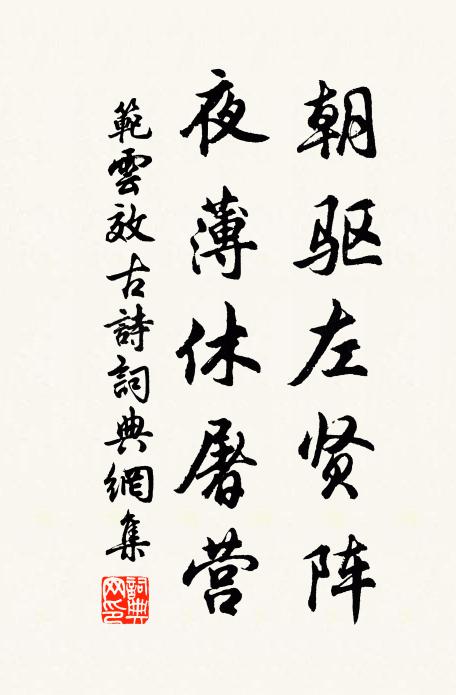 朝驱左贤阵
夜薄休屠营
範雲效古詩詞典網集
詞典网印